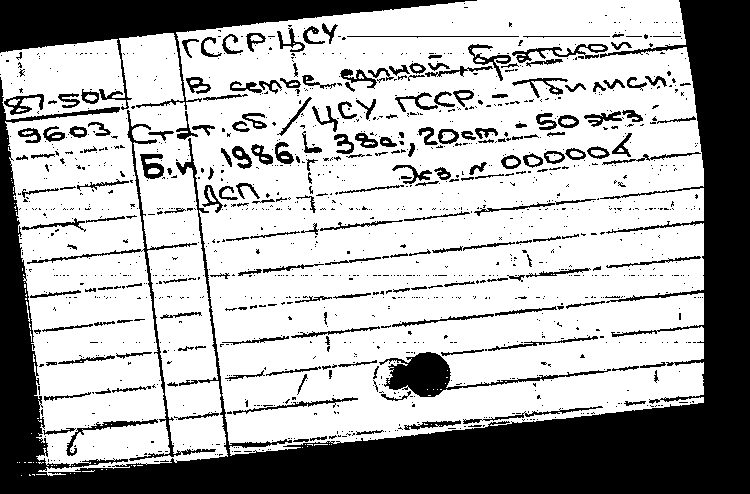 ГССР. ЦСУ.
87-50к В семье единой, братской.
9603 Стат. сб. / ЦСУ ГССР. - Тбилиси:
Б.и., 1986. - 38с., 20см. - 50 экз.
ДСП. Экз. N 000004.
6